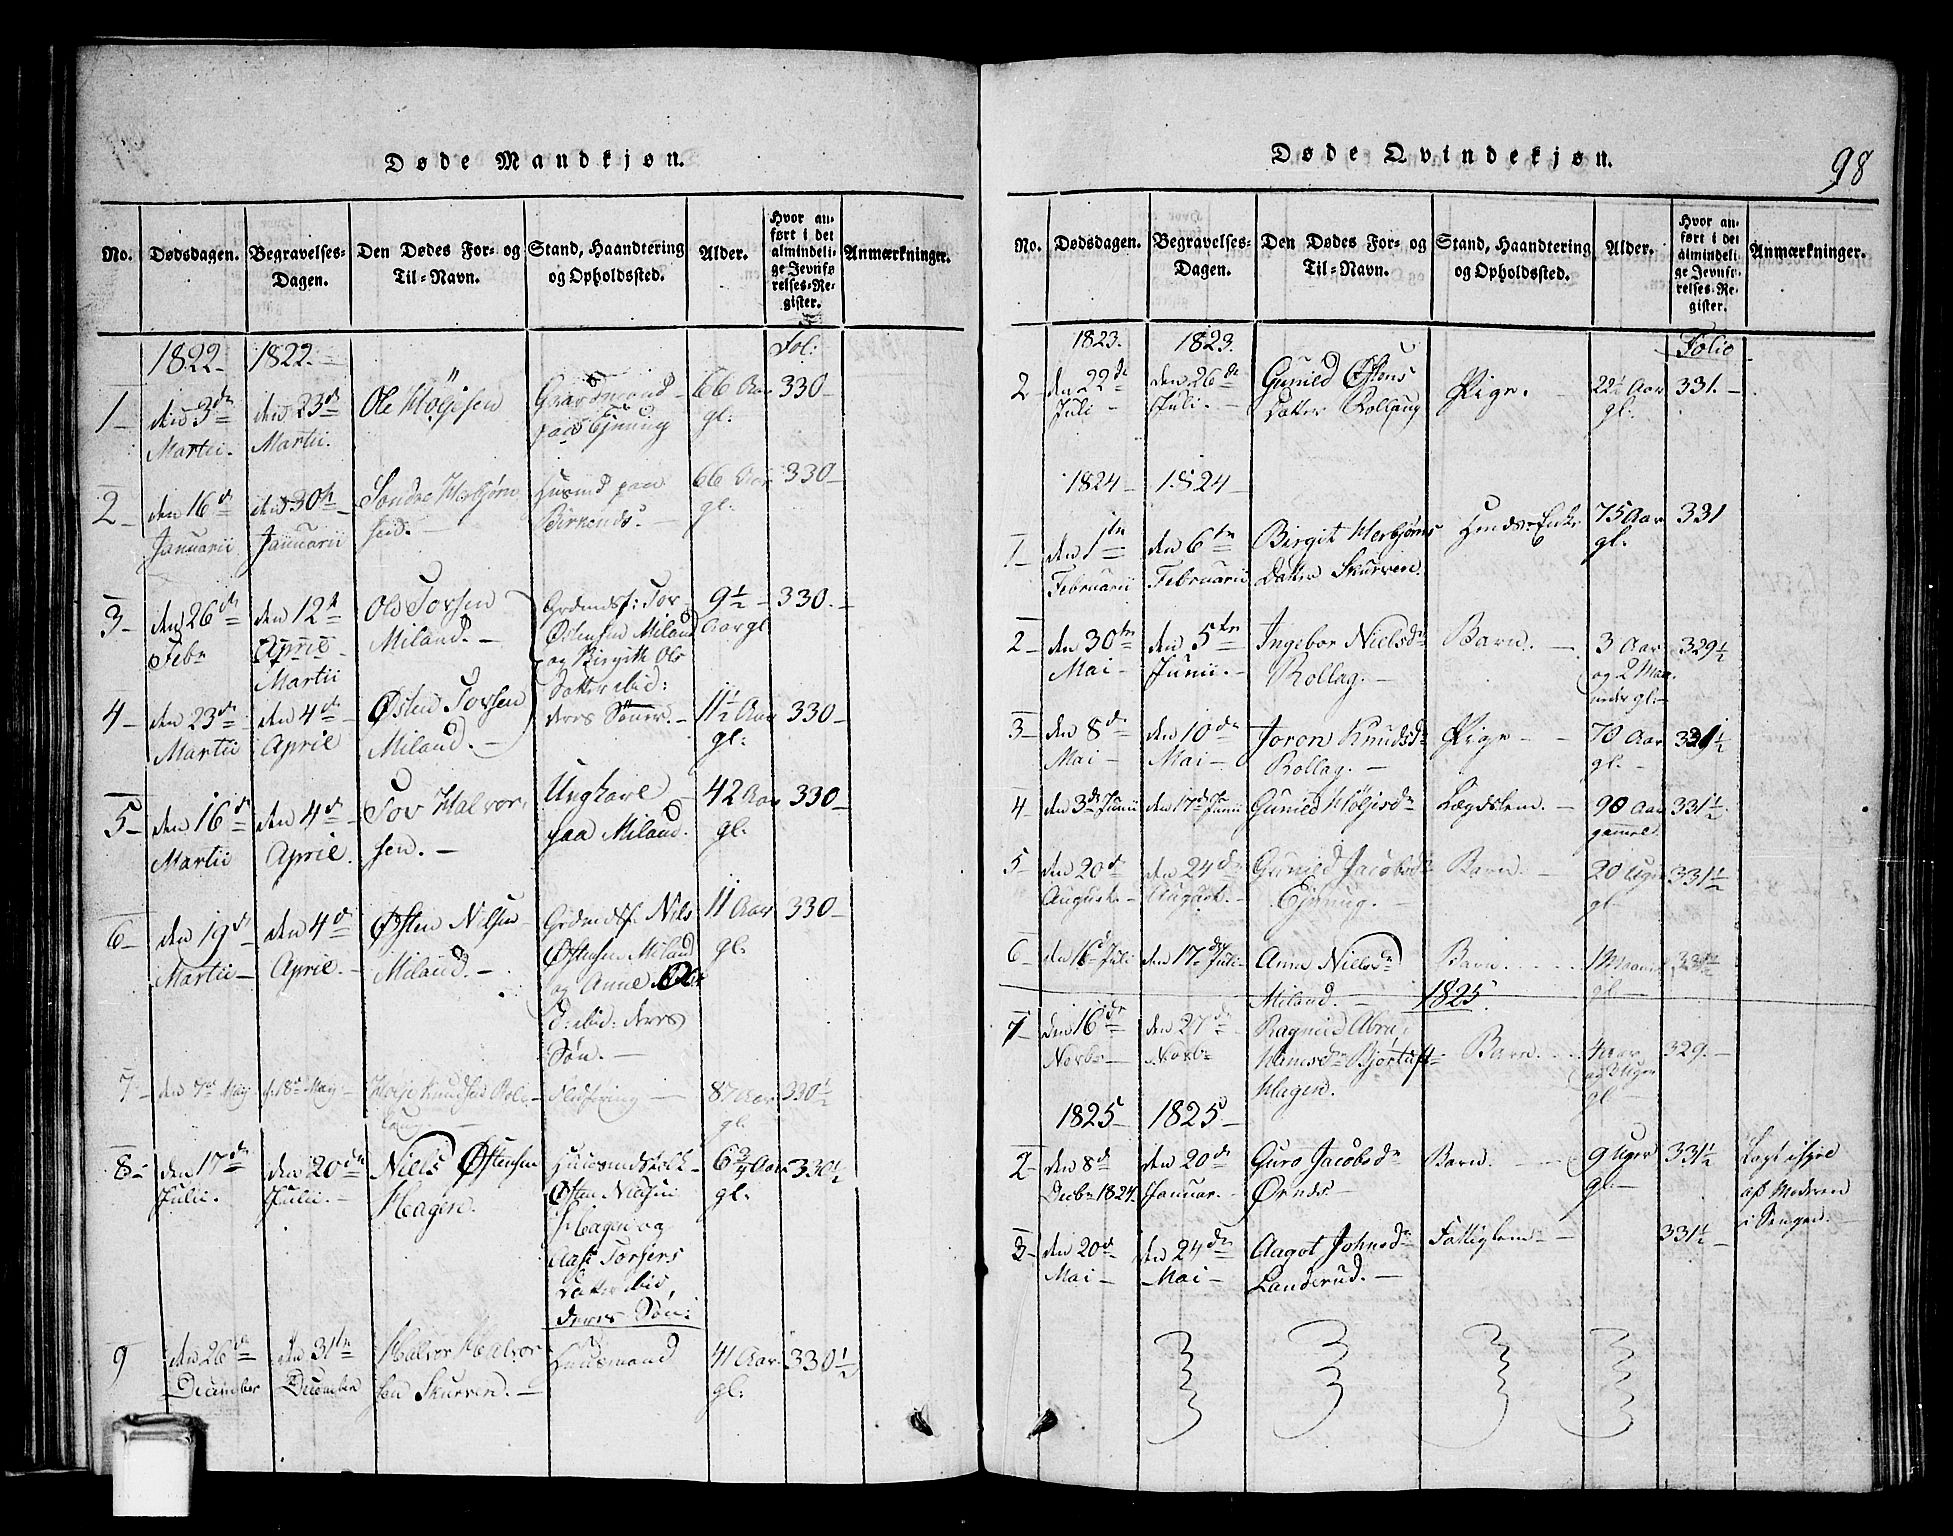 Døde Mandkjøn.
No.
Dødsdagen.
Begravelses-
Dagen.
Den Dødes For- og
Til-Navn.
Stand, Haandtering
og Opholdssted.
Alder.
Hvor an-
ført i det
almindeli-
ge Jevnfø-
relses-Re-
gister.
Anmærkninger.
1822 1822 Fol:
1 den 3d Martii. den 23d Martii. Ole Høljesen 66 Aar gl. 330
2 den 16d Januarii den 30th Januarii Sondre Herbjørn
sen. Husmd paa 66 Aar gl. 330
3 den 26d Febr den 12t April Ole Torsen
Miland. Grdmdsf: Tor
Østensen Miland
og Birgith Ols
Datter ibid:
deres Sönner. 9½ Aar gl 330
4 den 23d Martii Martii den 4d April Østen Torsen
Miland. 11½ Aar gl: 330
5 den 16d Martii den 4d April. Tov Halvor-
sen. Ungkarl
paa Miland. 42 Aar gl. 330
6 den 19d Martii den 4d April. Østen Nilsen
Miland. Grdmdsf. Nils
Østensen Miland
og Anne
D: ibid: deres
Søn. 11 Aar gl. 330
7 den 7d May d. 18d May Holje Knudsen 87 Aar gl. 330½
8 den 17de Julii. den 20de Julii. Niels Østensen
Hagen. Huusmdsfolk
Østen Nielsen
Hagen og
Aase Torsens
Datter ibid,
deres Søn: 6¾ Aar gl. 330½
9 den 26de December den 31te December Halvor Halvor
sen Skurven. Huusmand 41 Aar gl: 330½
Døde Qvindekjøn.
98
No.
Dødsdagen.
Begravelses-
Dagen.
Den Dødes For- og
Til-Navn.
Stand, Haandtering
og Opholdssted.
Alder.
Hvor an-
ført i det
almindeli-
ge Jevnfø-
relses-Re-
gister.
Anmærkninger.
1823. 1823. Folio
2 den 22de Juli den 26de Juli. Gunild Østens
Datter Pige. 22½ Aar gl. 331.
1824 1824
1 den 1te Februarii den 6te Februarii Birgit Herbjørns
Datter Skurven. Enke 75 Aar gl. 331
2 den 30te Mai den 5te Junii. Ingebor Nielsdr
Rollag. Barn. 3 Aar
og 2 Maa.
gl. 329½
3 den 8de Mai den 10de Mai Joron Knudsdr
Rollag. Pige 70 Aar gl. 331½
4 den 3de Junii den 17de Junii Gunild Høljesdr Lægdslem. 90 Aar
gammel. 331½
5 den 20d August. den 24de August. Gunild Jacobsdr Barn. 20 Uger gl 331½
6 den 16d Juli den 17de Juli Anne Nielsdr
Miland. Barn. 1 Maaned gl
1825
1 den 16de Novbr den 27de Novbr Ragnild Abra-
hamsdr Bjørtuft
Hagen. Barn. 4 Aar gl 329.
1825 1825
2 den 8d Decbr 1824. den 20de Januar. Guro Jacobsdr
Ørnes Barn. 9 Uger gl. 331½ Lagt ihjel
af Moderen
i Sengen.
3 den 20d Mai den 24de Mai Aagot Johnsdr
Landerud. Fattiglem 331½